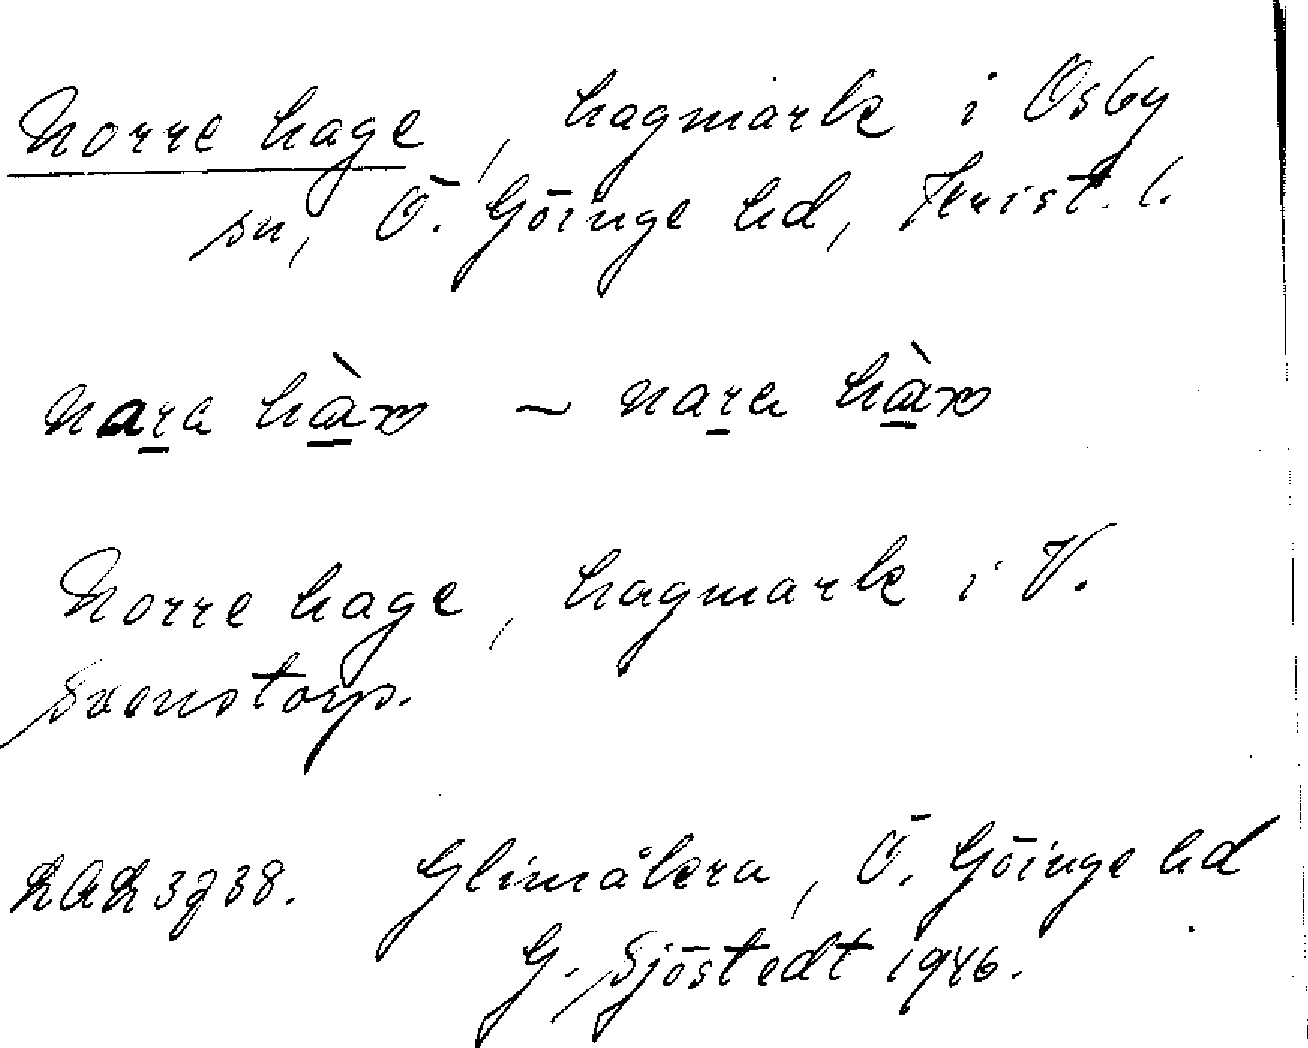 Norre hage, hagmark i Osby
sn, Ö. Göinge hd, Krist. l.
nara hàꝏ ~ nara hàꝏ
Norre hage, hagmark i V.
Svenstorp.
3738. Glimåkra, Ö. Göinge hd
G. Sjöstedt 1946.